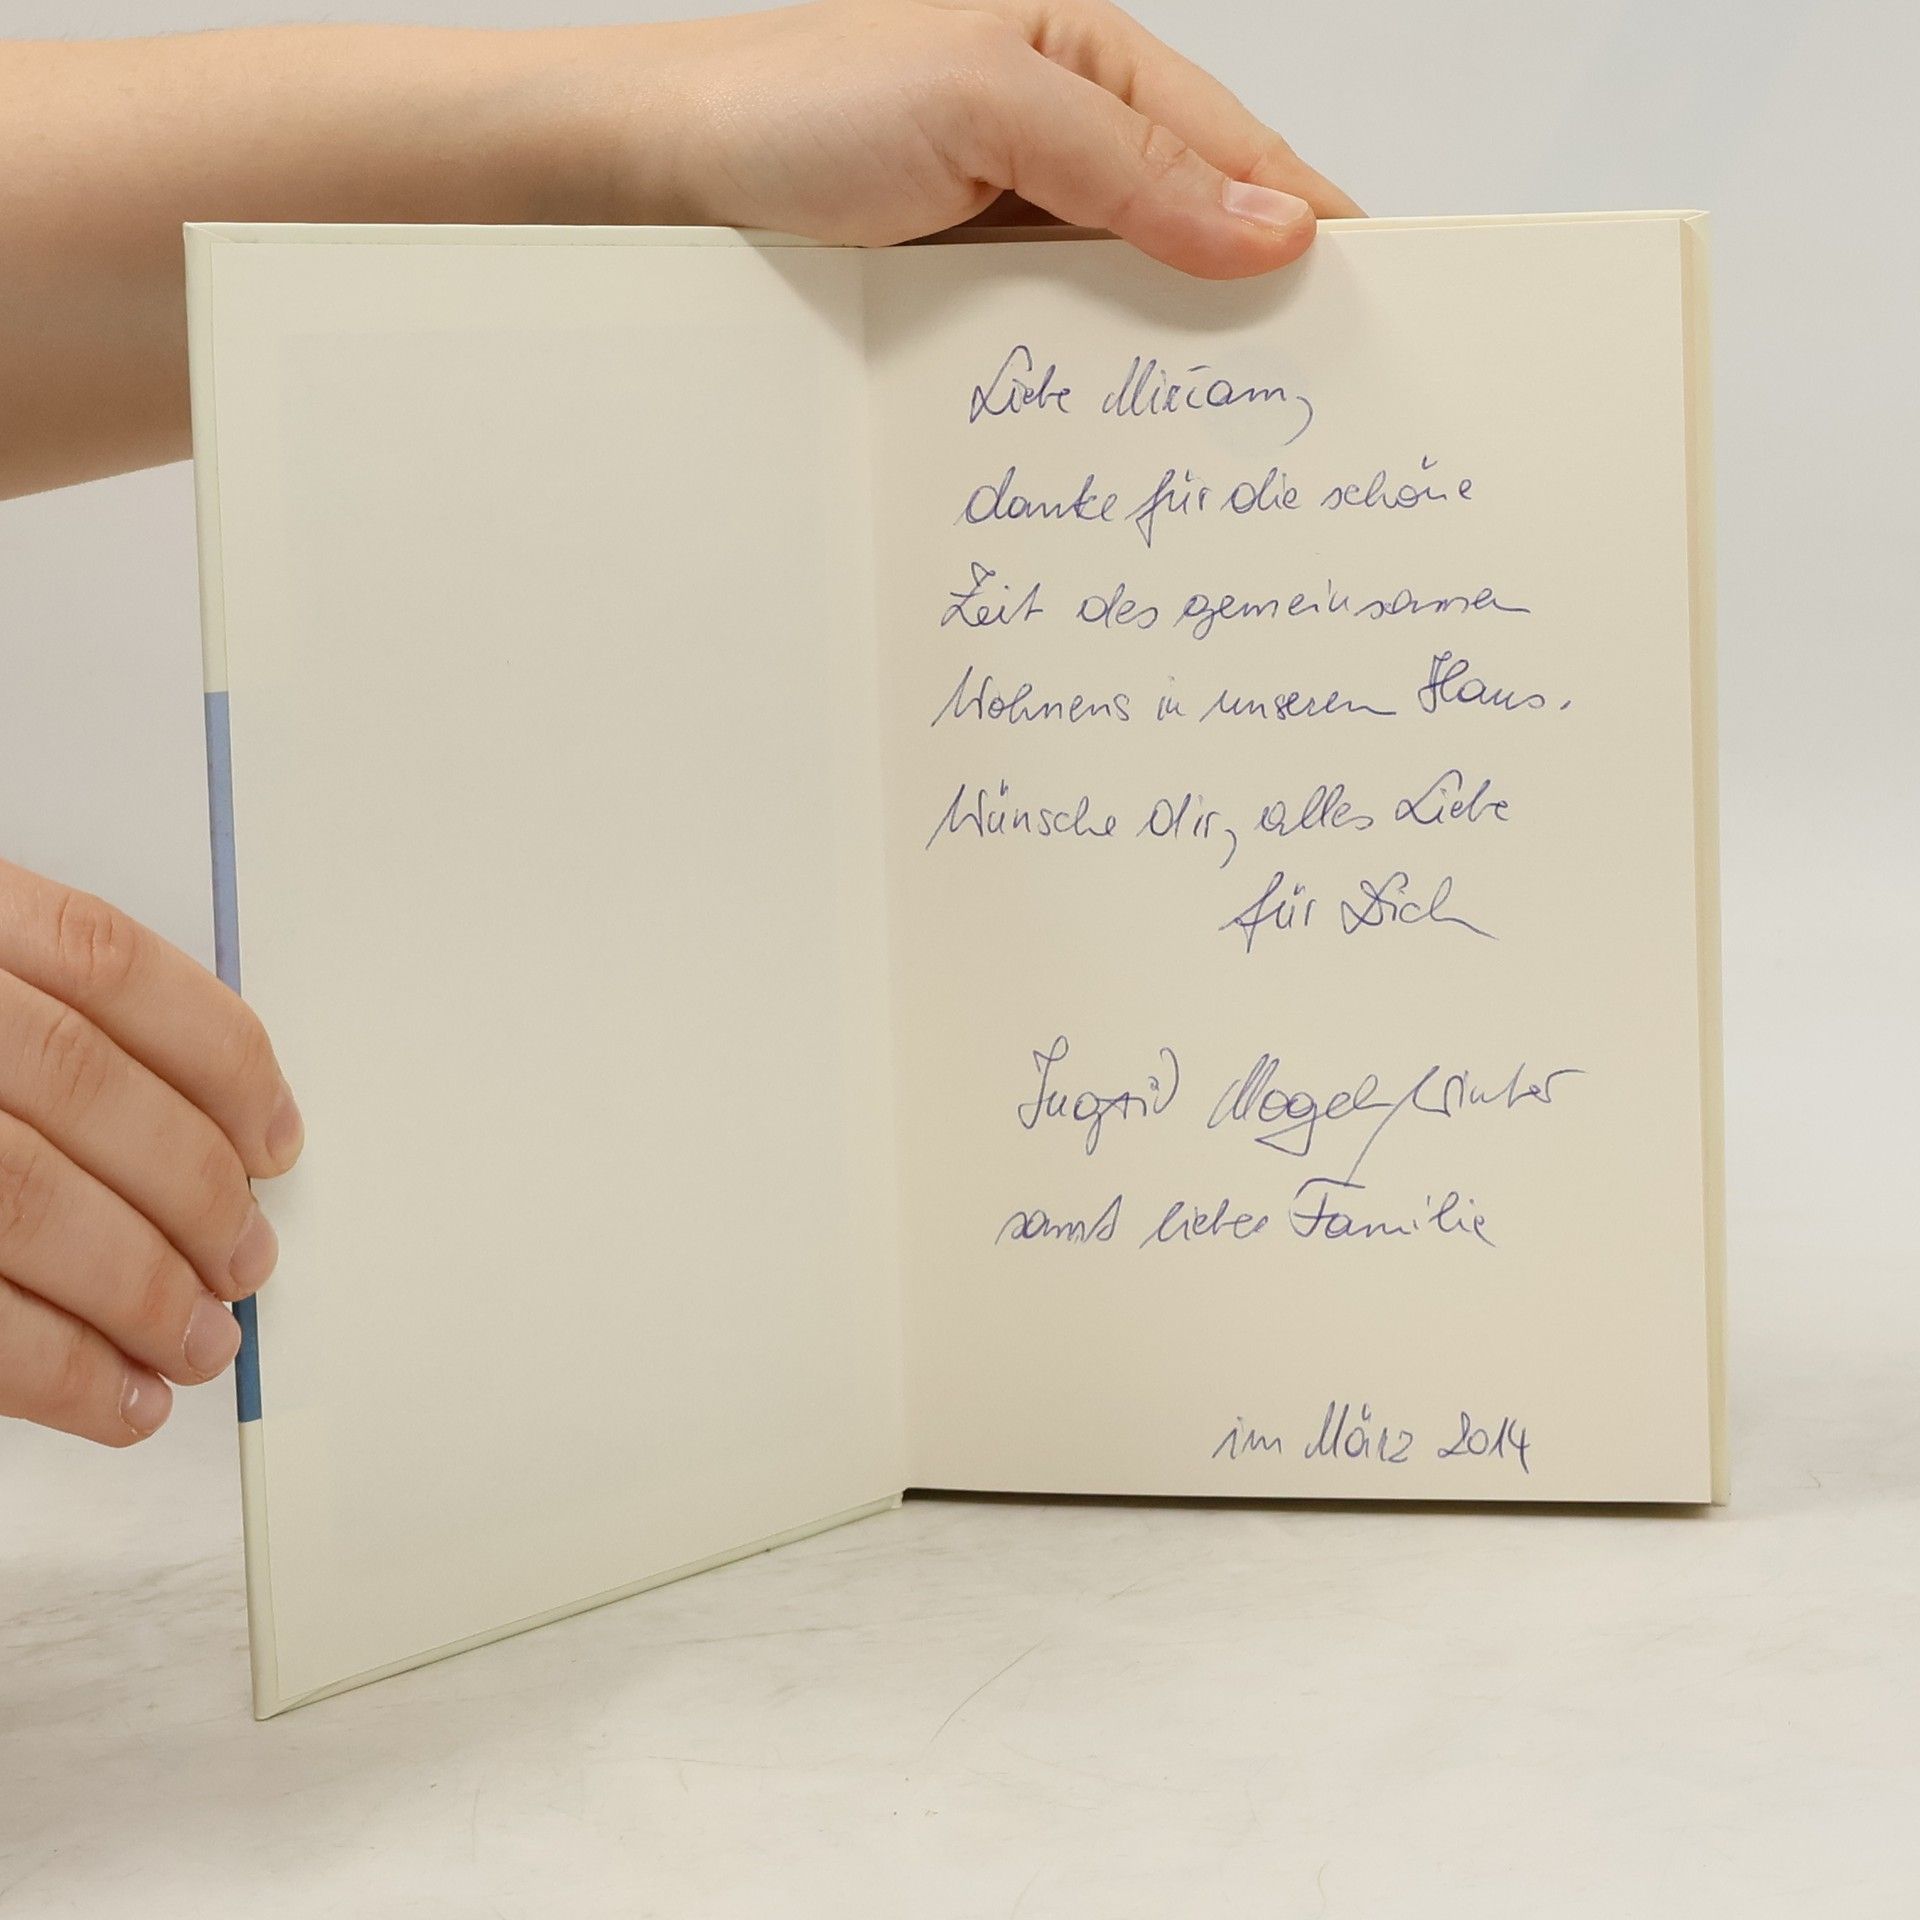 Liebe Miriam,
danke für die schöne
Zeit des gemeinsamen
Wohnens in unserem Haus.
Wünsche dir, alles Liebe
für Dich
Ingrid
samt lieber Familie
im März 2014